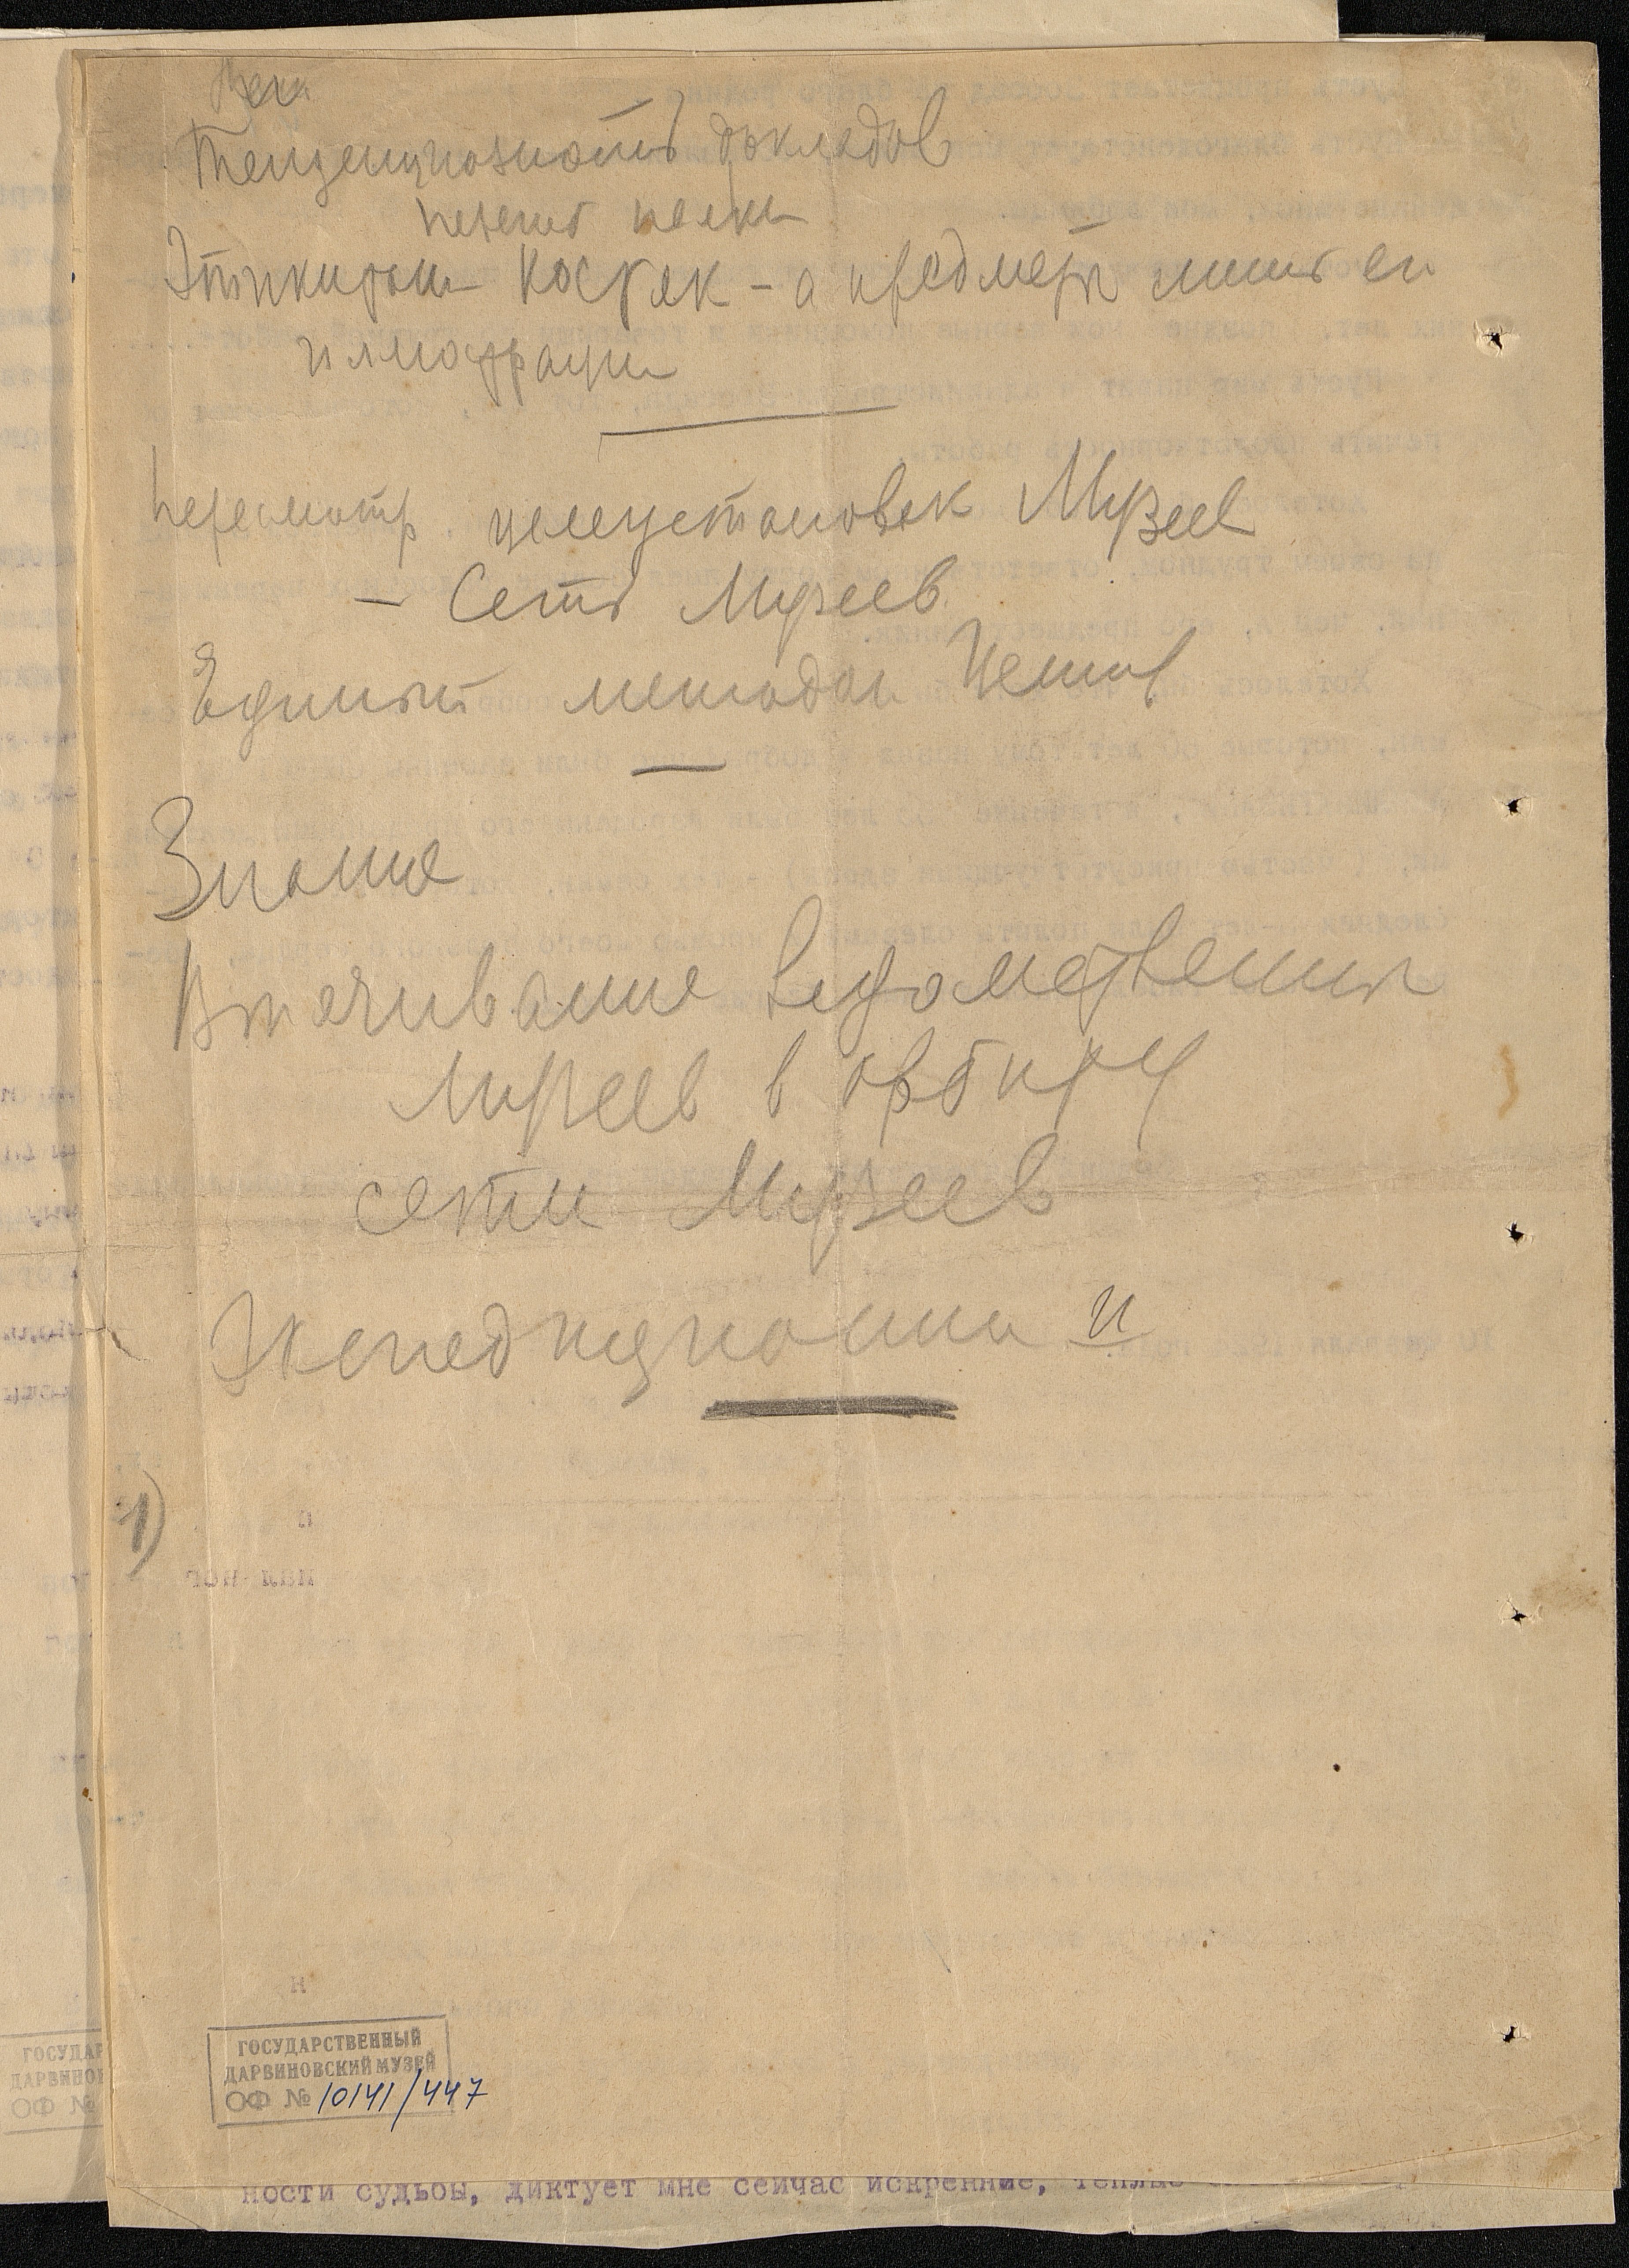 Тенденциозность докладов
Этикетаж костяк - а предмет лишь ея
иллюстрация
Пересмотр целеустановек Музеев
- Сеть Музеев
Единый методол Центр
Знание
Втягивание ведомственных
Музеев в орбиту
сети Музеев
Экспедиционный
1)
ГОСУДАРСТВЕННЫЙ
ДАРВИНОВСКИЙ МУЗЕЙ
ОФ № 10141/447
ности судьбы, диктует мне сейчас искренние, теплые